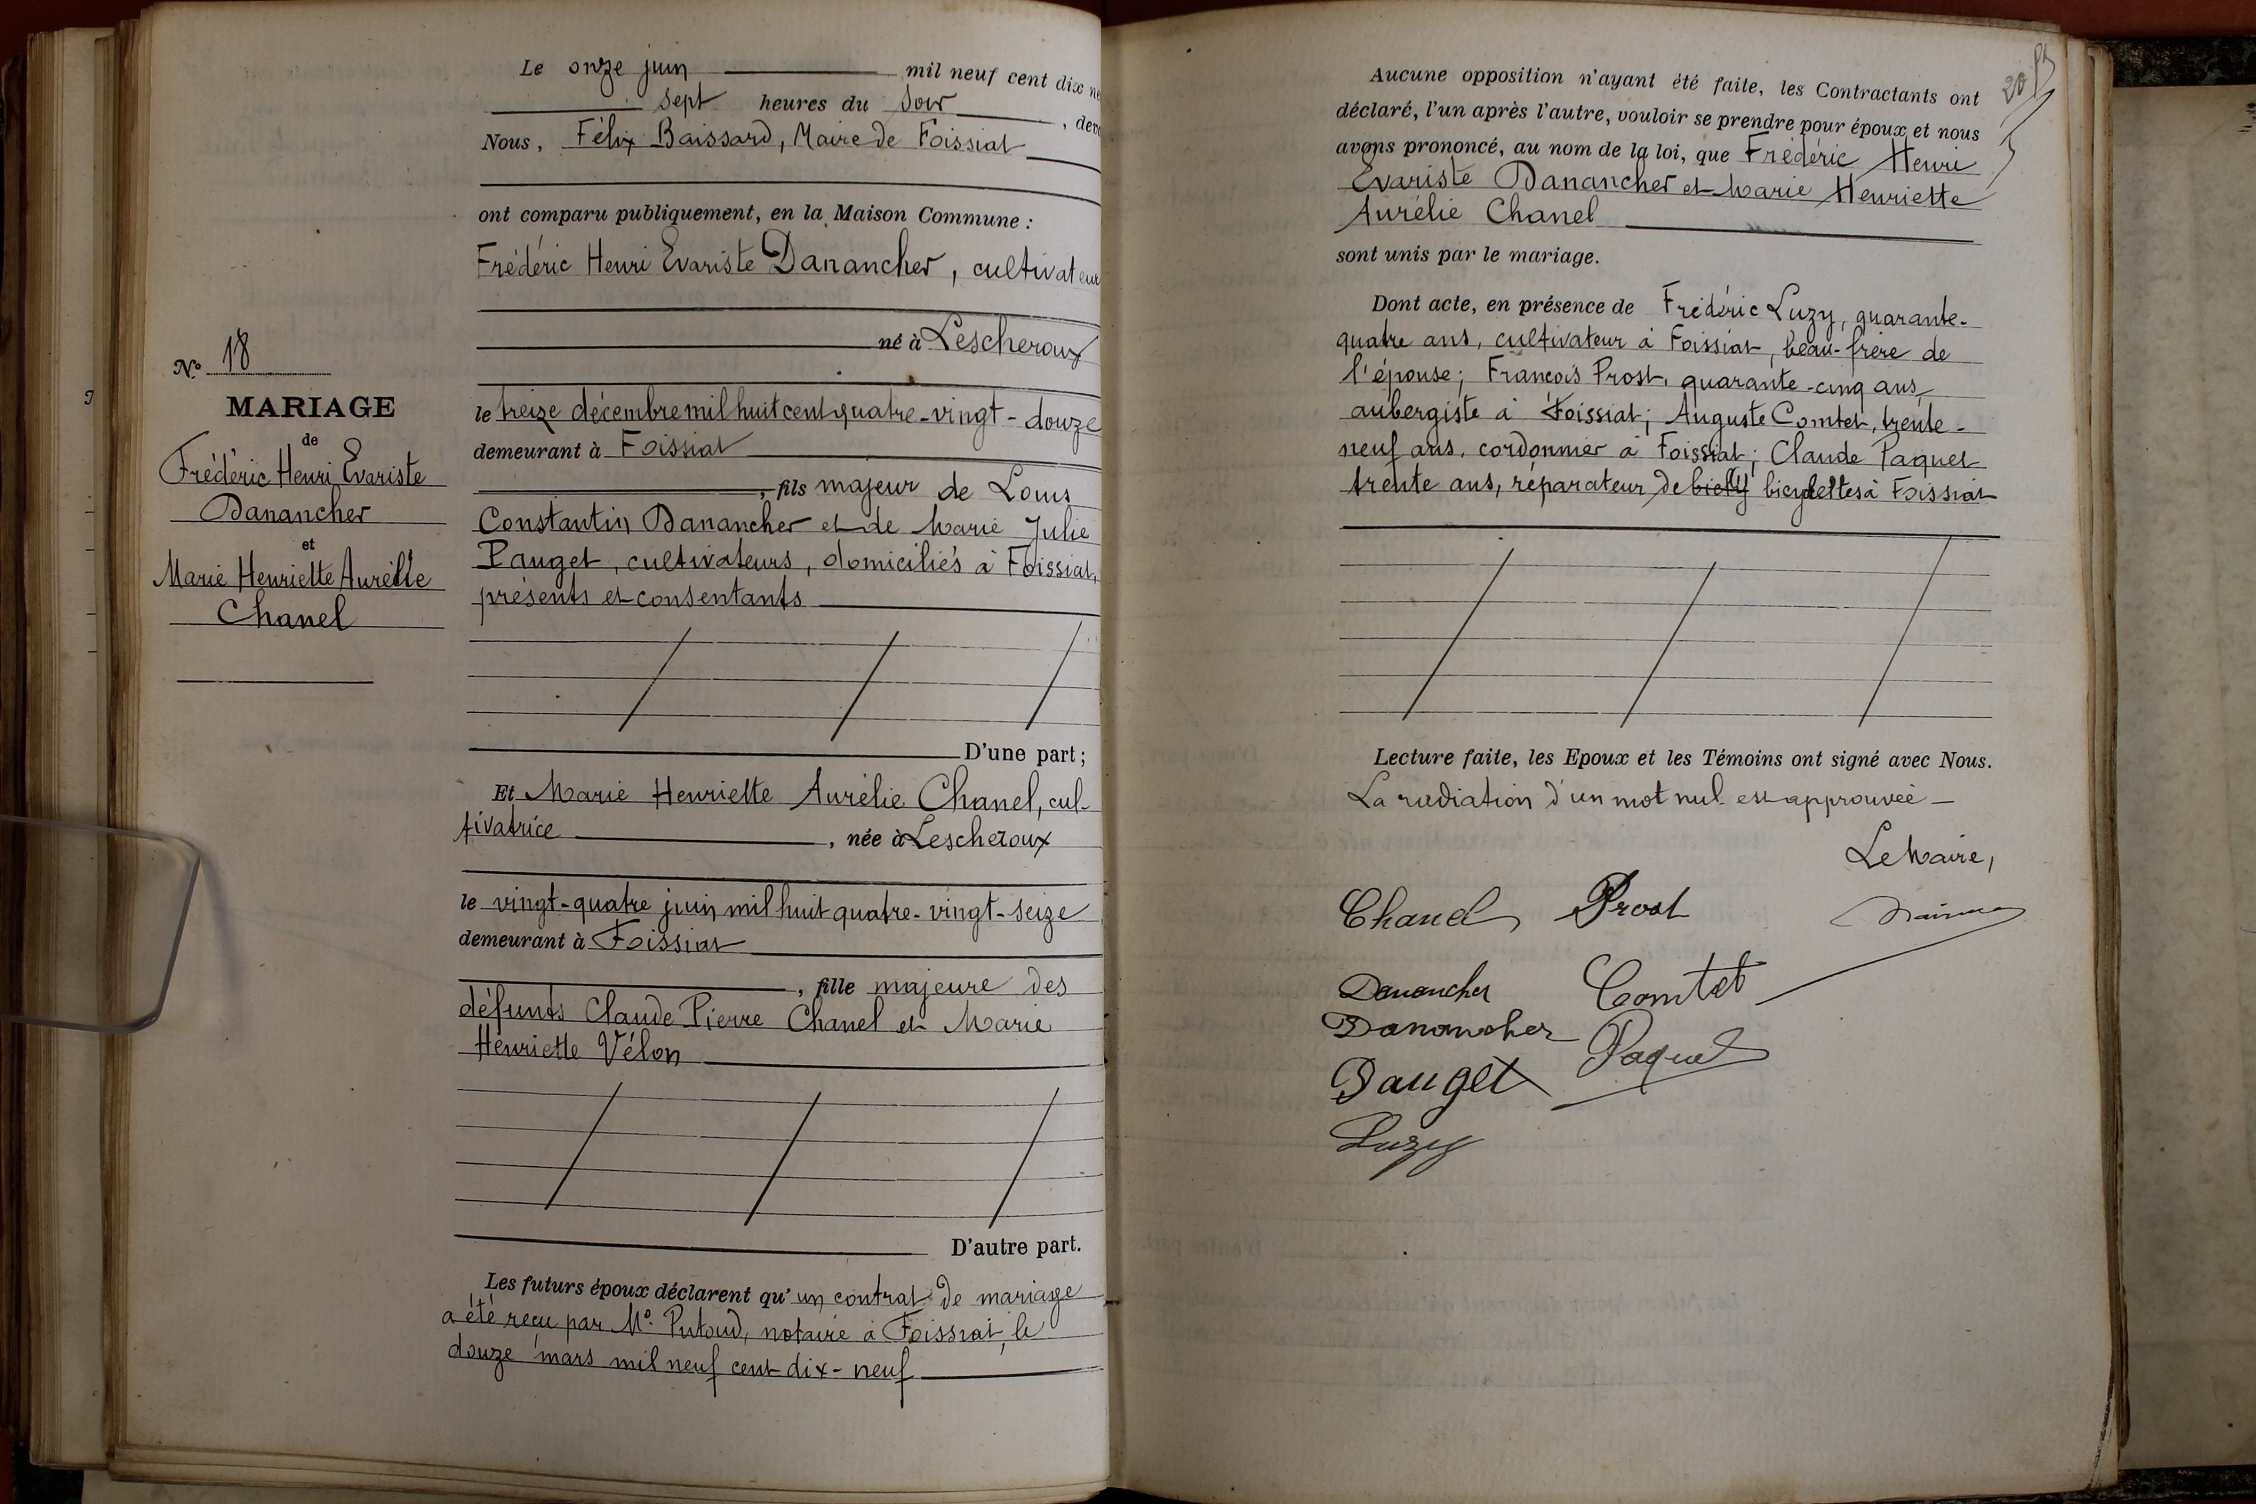 Le onze juin mil neuf cent dix ne
sept heures du soir, deva
Nous, Félix Baissard, Maire de Foissiat
ont comparu publiquement, en la Maison Commune :
Frédéric Henri Evariste Danancher, cultivateur
né à Lescheroux
le treize décembre mil huit cent quatre-vingt-douze
demeurant à Foissiat
, fils majeur de Louis
Constantin Danancher et de Marie Julie
Pauget, cultivateurs, domiciliés à Foissiat,
présents et consentants
D'une part ;
Et Marie Henriette Aurélie Chanel, cul-
tivatrice, née à Lescheroux
le vingt-quatre juin mil huit quatre-vingt-seize
demeurant à Foissiat
, fille majeure des
défunts Claude Pierre Chanel et Marie
Henriette Vélon
D'autre part.
Les futurs époux déclarent qu'un contrat de mariage
a été reçu par Mº. Putoud, notaire à Foissiat, le
douze mars mil neuf cent dix-neuf
Nº 18
MARIAGE
de
Frédéric Henri Evariste
Danancher
et
Marie Henriette Aurélie
Chanel
20
Aucune opposition n'ayant été faite, les Contractants ont
déclaré, l'un après l'autre, vouloir se prendre pour époux et nous
avons prononcé, au nom de la loi, que Frédéric Henri
Evariste Danancher et Marie Henriette
Aurélie Chanel
sont unis par le mariage.
Dont acte, en présence de Frédéric Luzy, quarante-
quatre ans, cultivateur à Foissiat, beau-frère de
l'épouse; François Prost, quarante-cinq ans,
aubergiste à Foissiat; Auguste Comtet, trente-
neuf ans, cordonnier à Foissiat; Claude Paquet
trente ans, réparateur de bicly bicyclettes à Foissiat
Lecture faite, les Epoux et les Témoins ont signé avec Nous.
La radiation d'un mot nul est approuvée
Le Maire,
Chanel Prost
Danancher Comtet
Danancher Paquet
Pauget
Luzy